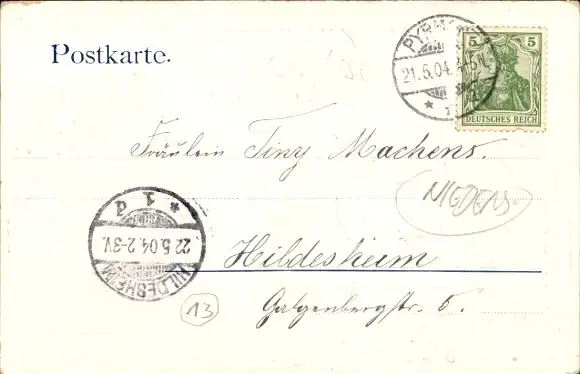 Postkarte.
PYRM
21.5.04.
* 1
5 5
DEUTSCHES REICH
Fräulein Tiny Machens.
NIEDERS
* 1 d
22.5.04. 2-3V.
HILDESHEIM
Hildesheim
Galgenbergstr. 5.
13